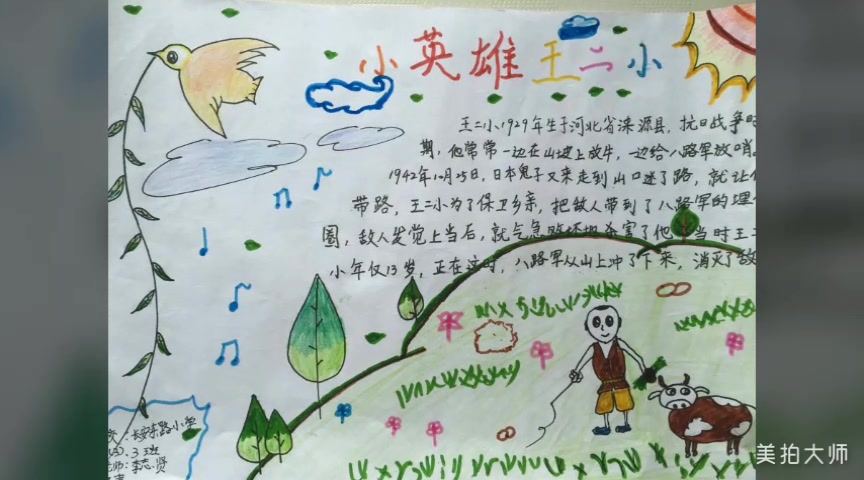 小英雄王二小
王二小1929年生于河北省涞源县，抗日战争时
期，他常常一边在山坡上放牛，一边给八路军放哨。
1942年10月25日，日本鬼子又来走到山口迷了路，就让他
带路，王二小为了保卫乡亲，把敌人带到了八路军的埋伏
圈，敌人发觉上当后，就气急败坏地杀害了他。当时王二
小年仅13岁，正在这时，八路军从山上冲了下来，消灭了敌
长安东路小学
3班
李志贤
美拍大师